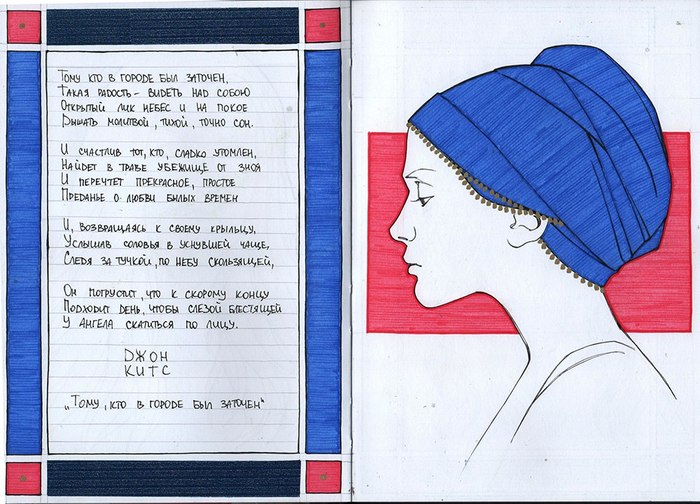 Тому кто в городе был заточен,
Такая радость – видеть над собою
Открытый лик небес и на покое
Дышать молитвой, тихой, точно сон.
И счастлив тот, кто, сладко утомлен,
Найдет в траве убежище от зноя
И перечтет прекрасное, простое
Преданье о любви былых времен
И, возвращаясь к своему крыльцу,
Услышав соловья в уснувшей чаще,
Следя за тучкой, по небу скользящей,
Он погрустит, что к скорому концу
Подходит день, чтобы слезой блестящей
У ангела скатиться по лицу.
Джон
Китс
„Тому, кто в городе был заточен"